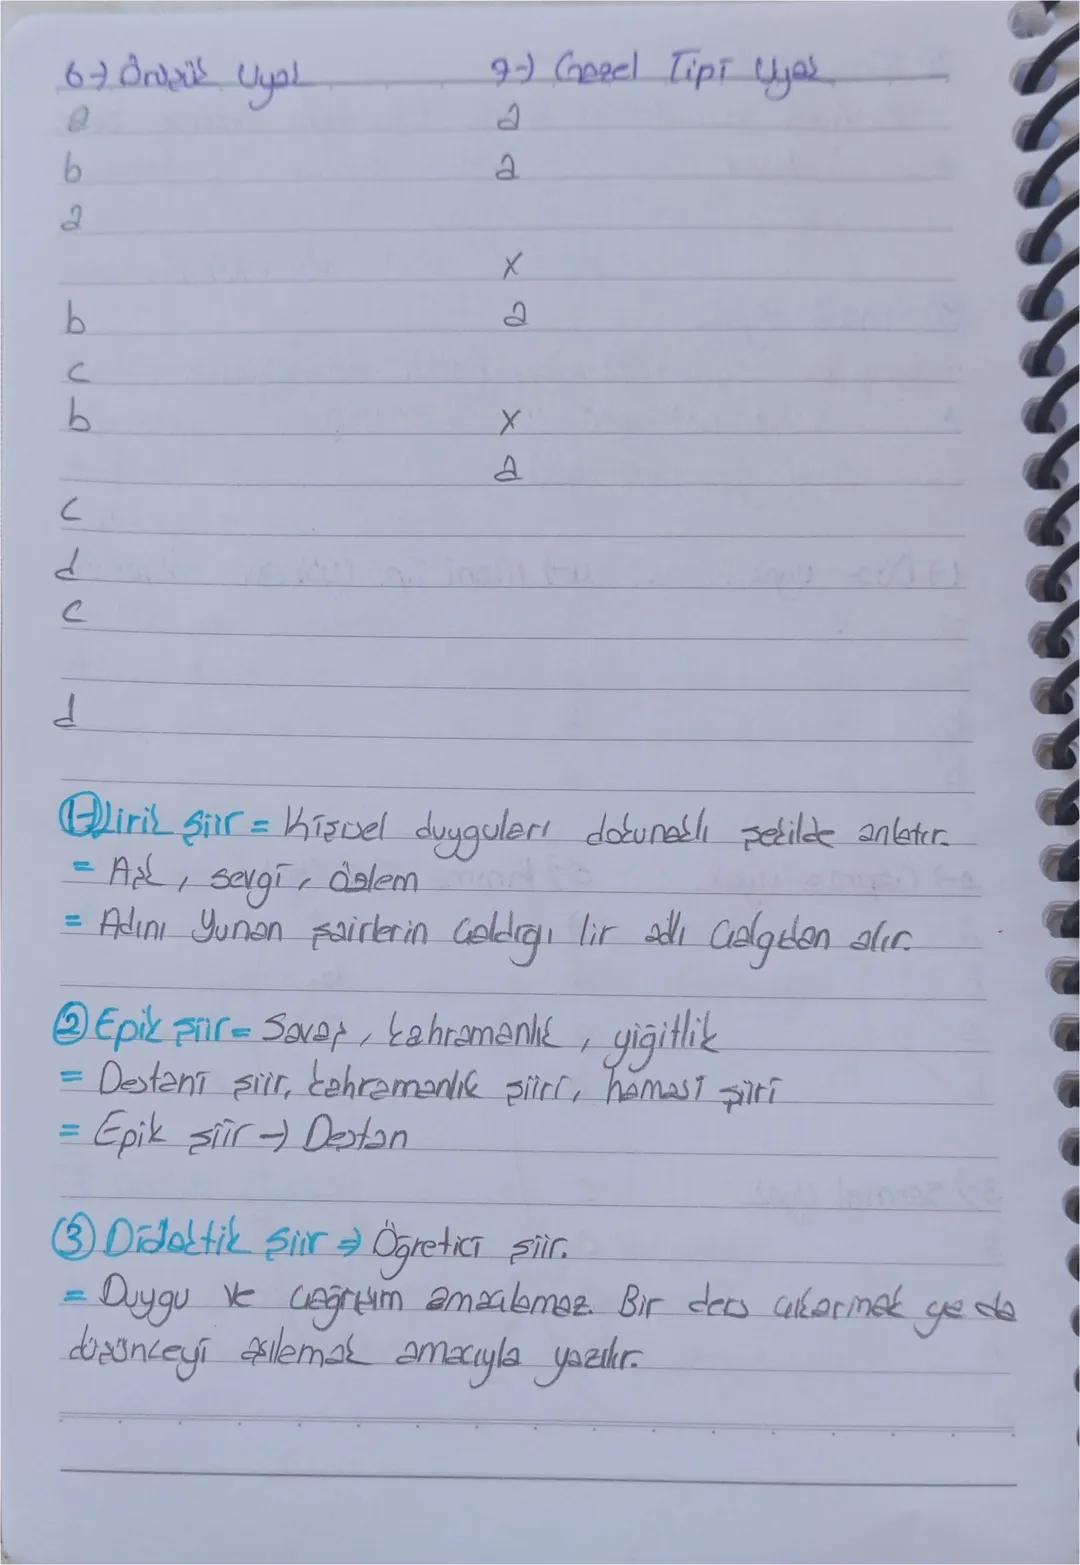 6-) Örüşük Uyak
9-) Gazel Tipi Uyak
a
a
b
a
a
x
b
a
c
b
x
a
c
d
c
d
1-) Lirik Şiir = Kişisel duyguları dokunaklı şekilde anlatır.
= Aşk, sevgi, özlem
= Adını Yunan şairlerin çaldığı lir adlı çalgıdan alır.
2 Epik şiir = Savaş, kahramanlık, yiğitlik
= Destani şiir, kahramanlık şiiri, hamasi şiiri
= Epik şiir → Destan
3 Didaktik Şiir → Öğretici şiir.
= Duygu ve çağrışım amaçlamaz. Bir ders çıkarmak ya da
düşünceyi aşılamak amacıyla yazılır.